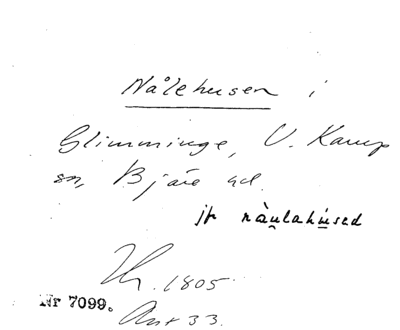 Nålehusen i
Glimminge, V. Karup
sn, Bjäre hd.
jfr nàu̯lahu̇sed
1805
Nr 7099.
Ant 33.